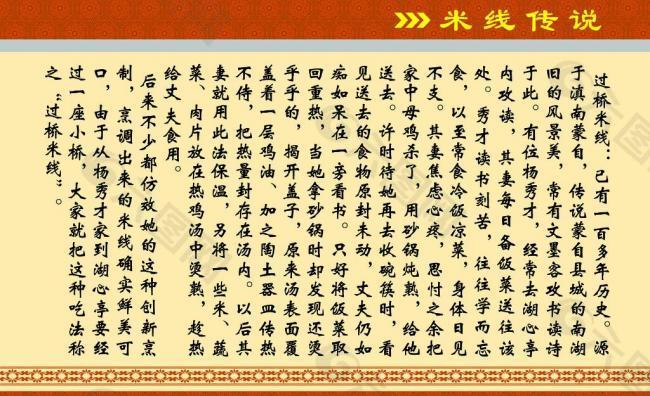 米线传说
过桥米线：已有一百多年历史。源
于滇南蒙自，传说蒙自县城的南湖
旧的风景美，常有文墨客攻书读诗
于此。有位杨秀才，经常去湖心亭
内攻读，其妻每日备饭菜送往该
处。秀才读书刻苦，往往学而忘
食，以至常食冷饭凉菜，身体日见
不支。其妻焦虑心疼，思忖之余把
家中母鸡杀了，用砂锅炖熟，给他
送去。许时待她再去收碗筷时，看
见送去的食物原封未动，丈夫仍如
痴如呆在一旁看书。只好将饭菜取
回重热，当她拿砂锅时却发现还烫
乎乎的，揭开盖子，原来汤表面覆
盖着一层鸡油、加之陶土器皿传热
不侍，把热量封存在汤内。以后其
妻就用此法保温，另将一些米、蔬
菜、肉片放在热鸡汤中烫熟，趁热
给丈夫食用。
后来不少都仿效她的这种创新烹
制，烹调出来的米线确实鲜美可
口，由于从杨秀才家到湖心亭要经
过一座小桥，大家就把这种吃法称
之“过桥米线”。